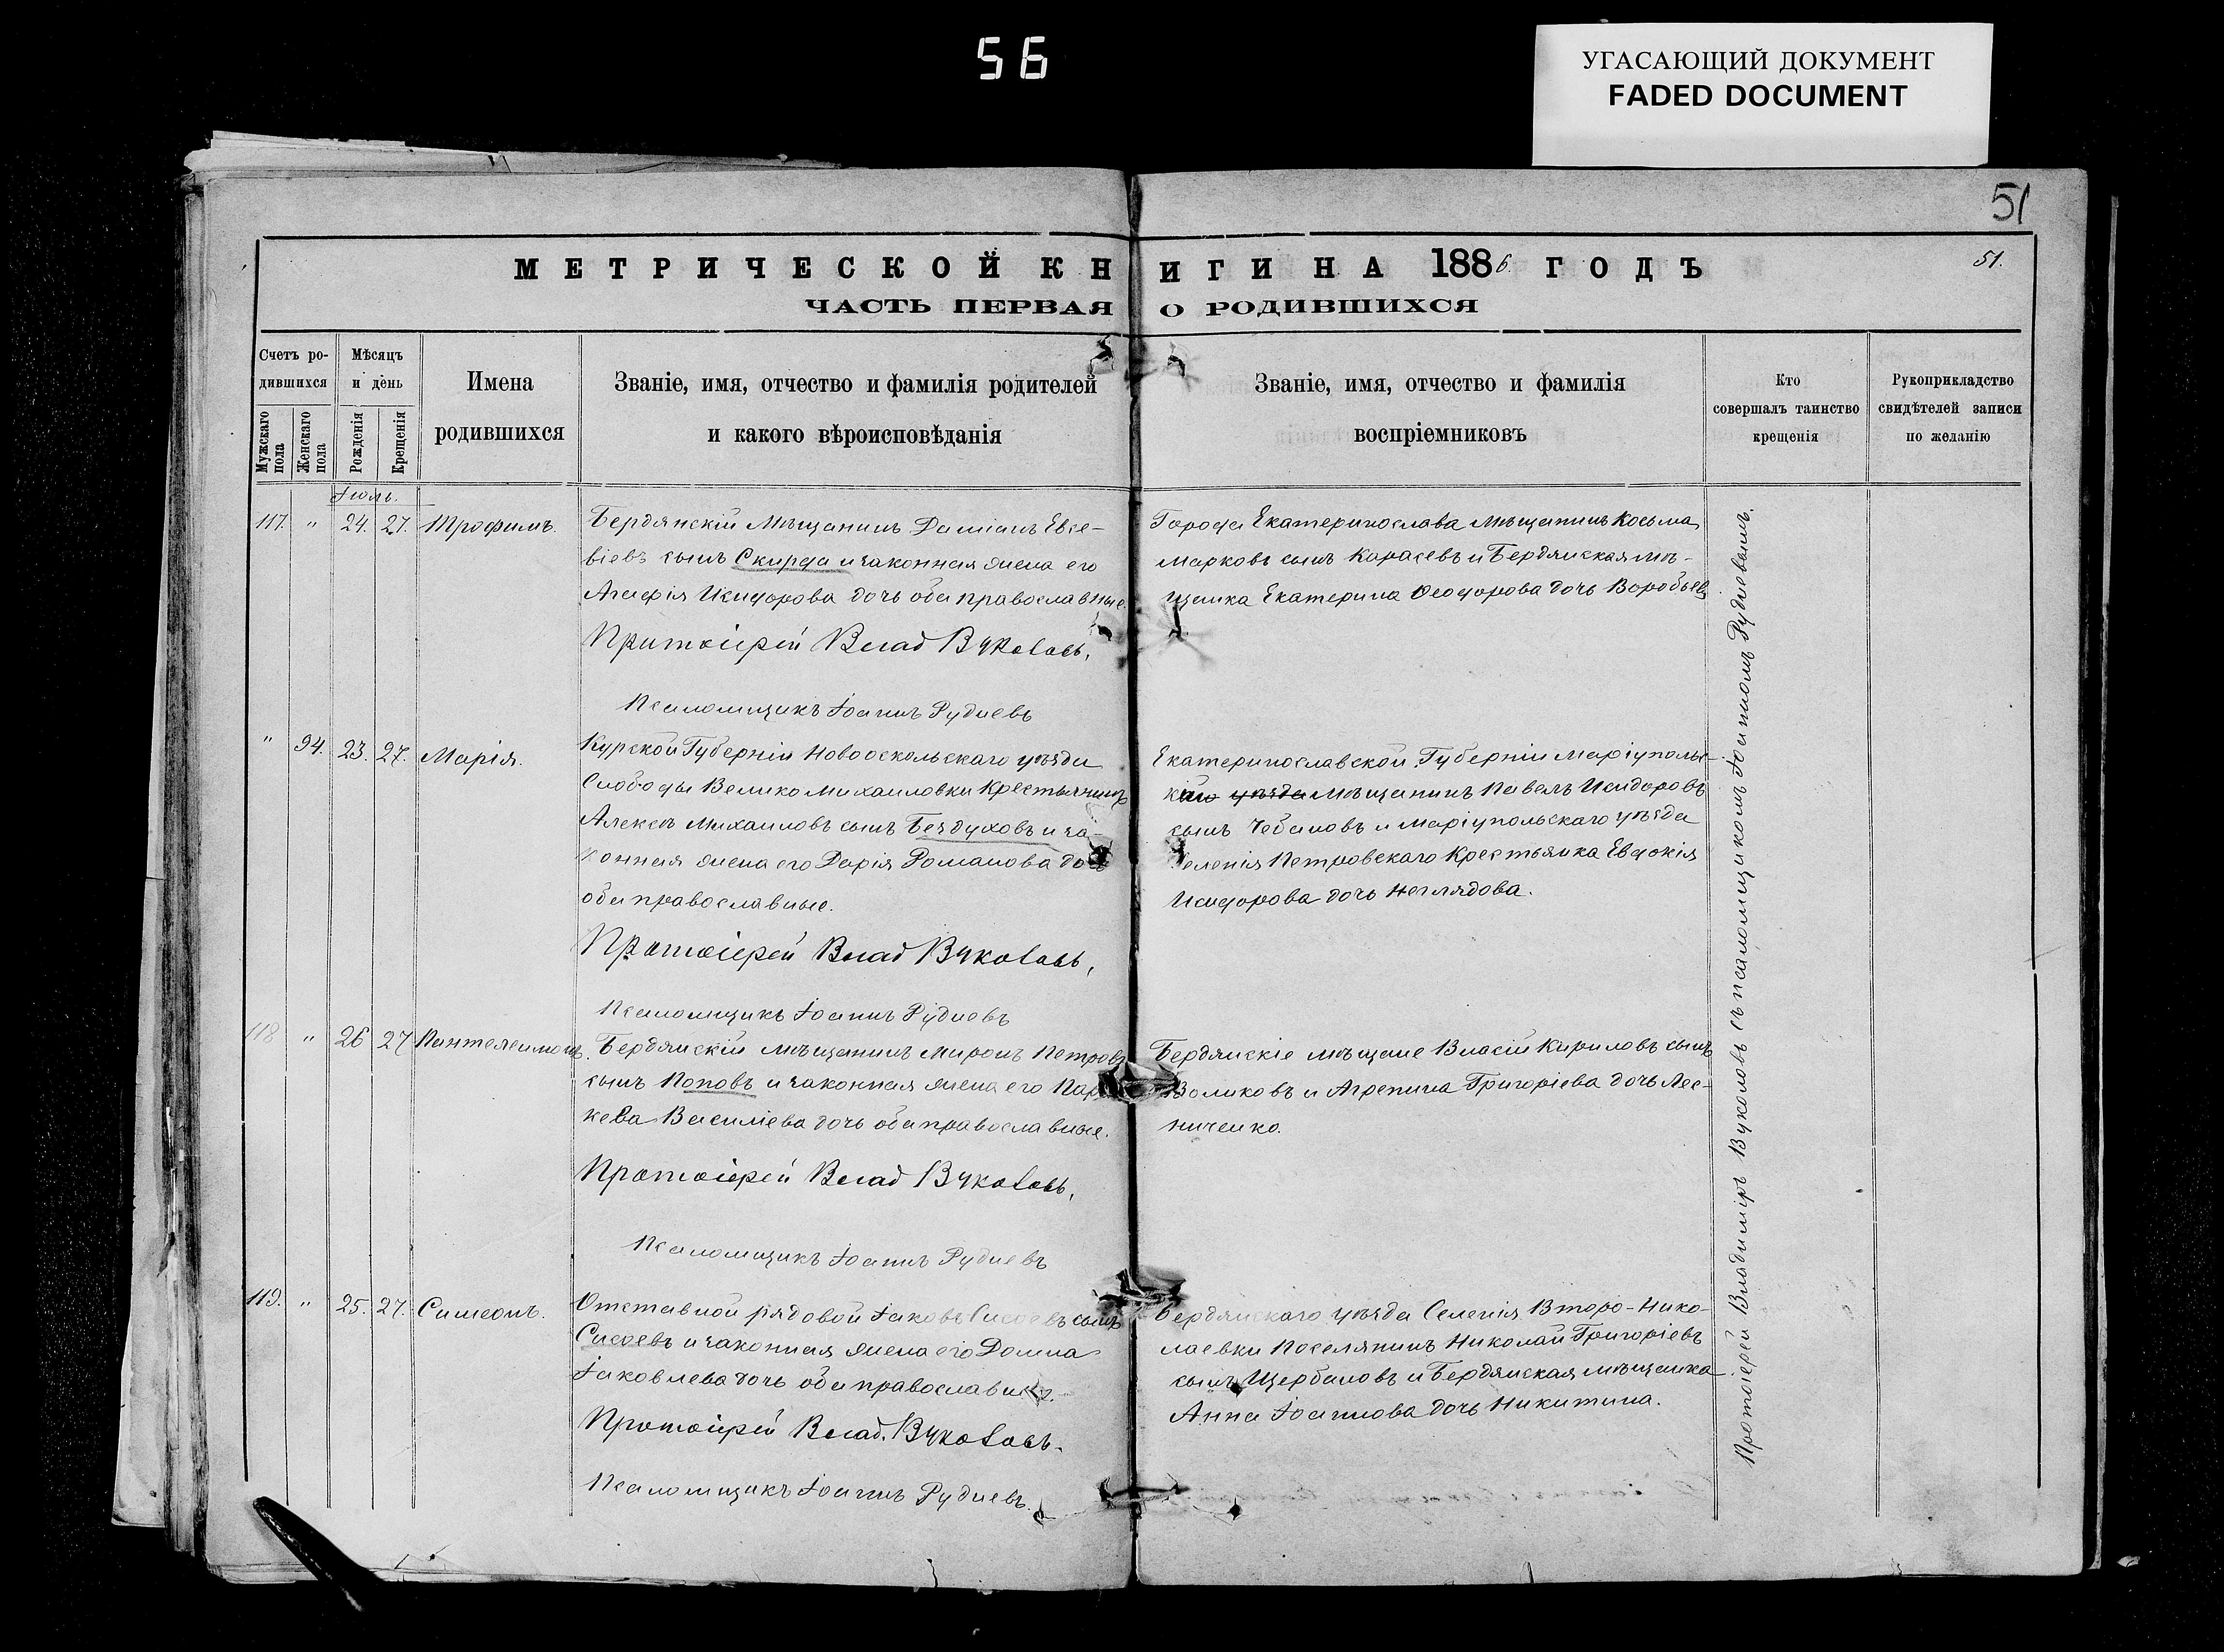 56
УГАСАЮЩИЙ ДОКУМЕНТ
FADED DOCUMENT
51
МЕТРИЧЕСКОЙ КНИГИ НА 1886 ГОДЪ
51.
ЧАСТЬ ПЕРВАЯ О РОДИВШИХСЯ
Счетъ ро-
дившихся
Мужскаго пола
Женскаго пола
Мѣсяцъ
и день
Рожденія
Крещенія
Имена
родившихся
Званіе, имя, отчество и фамилія родителей
и какого вѣроисповѣданія
Званіе, имя, отчество и фамилія
воспріемниковъ
Кто
совершалъ таинство
крещенія
Рукоприкладство
свидѣтелей записи
по желанію
Іюль.
117. " 24. 27. Трофимъ.
Бердянскій Мѣщанинъ Даміанъ Евсе-
віевъ сынъ Скирда и законная жена его
Агафія Исидорова дочь оба православные.
Протоіерей Влад Вуколовъ,
Псаломщикъ Іоаннъ Рудневъ
Города Екатеринослава Мѣщанинъ Косьма
Марковъ сынъ Карасевъ и Бердянская мѣ-
щанка Екатерина Ѳеодорова дочь Воробьев
" 94. 23. 27. Марія.
Курской Губерніи Новооскольскаго уѣзда
Слободы Велико Михаиловки Крестьянинъ
Алексѣй Михаиловъ сынъ Бездуховъ и за-
конная жена его Дарія Романова дочь
оба православные.
Протоіерей Влад Вуколовъ,
Псаломщикъ Іоаннъ Рудневъ
Екатеринославской Губерніи Маріупольс-
кій уѣзда Мѣщанинъ Павелъ Исидоровъ
сынъ Чебановъ и Маріупольскаго уѣзда
Селенія Петровскаго Крестьянка Евдокія
Исидорова дочь Неглядова.
118 " 26 27 Пантелеимонъ.
Бердянскій мѣщанинъ Миронъ Петровъ
сынъ Поповъ и законная жена его Парас-
кева Василіева дочь оба православные.
Протоіерей Влад Вуколовъ,
Псаломщикъ Іоаннъ Рудневъ
Бердянскіе мѣщане Власій Кириловъ сынъ
Воликовъ и Агрепина Григоріева дочь Лес-
ниченко.
119. " 25. 27. Симеонъ.
Отставной рядовой Іаковъ Сисоевъ сынъ
Сисоевъ и законная жена его Домна
Іаковлева дочь оба православные.
Протоіерей Влад. Вуколовъ.
Псаломщикъ Іоаннъ Рудневъ.
Бердянскаго уѣзда Селенія Второ-Нико-
лаевки Поселянинъ Николай Григоріевъ
сынъ Щербаковъ и Бердянская мѣщанка
Анна Іоаннова дочь Никитина.
Протоіерей Владиміръ Вуколовъ съ псаломщикомъ Іоанномъ Рудневымъ.